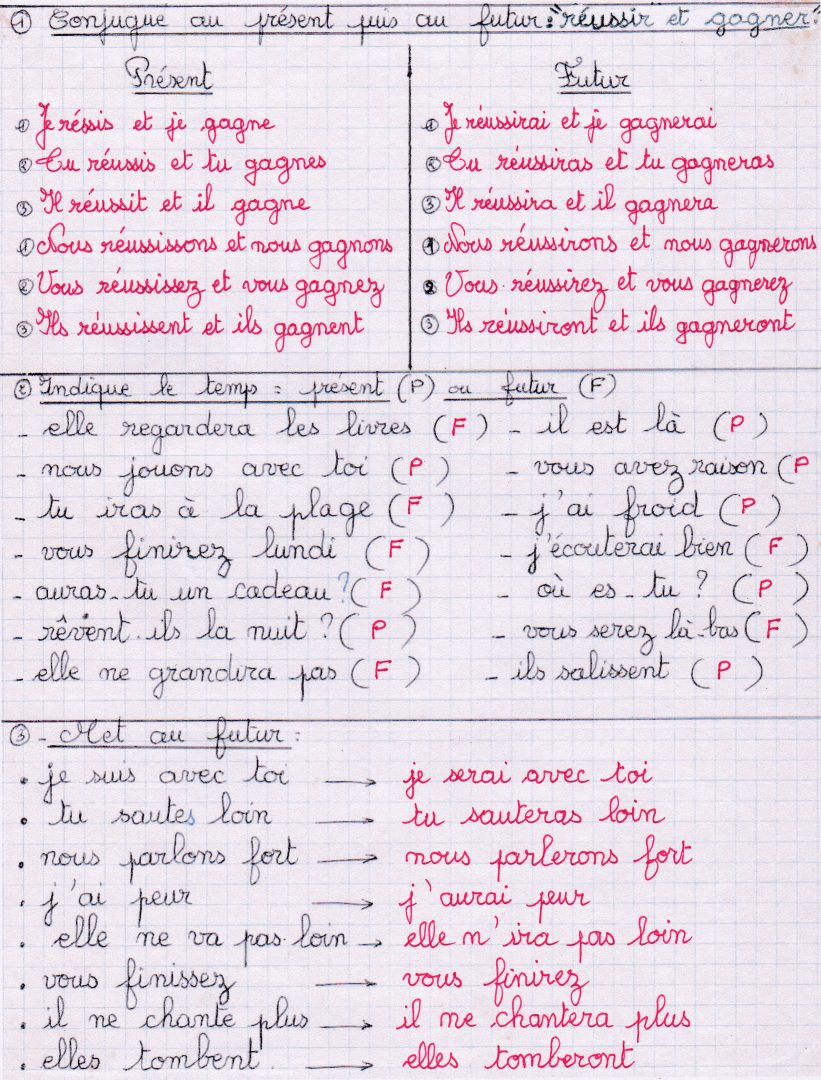 ① Conjugue au présent puis au futur : "réussir et gagner"
Présent
① Je réssis et je gagne
② Tu réussis et tu gagnes
③ Il réussit et il gagne
① Nous réussissons et nous gagnons
② Vous réussissez et vous gagnez
③ Ils réussissent et ils gagnent
Futur
① Je réussirai et je gagnerai
② Tu réussiras et tu gagneras
③ Il réussira et il gagnera
1 Nous réussirons et nous gagnerons
2 Vous réussirez et vous gagnerez
③ Ils réussiront et ils gagneront
② Indique le temps : présent (P) ou futur (F)
- elle regardera les livres (F) - il est là (P)
- nous jouons avec toi (P) - vous avez raison (P
- tu iras à la plage (F) - j'ai froid (P)
- vous finirez lundi (F) - j'écouterai bien (F)
- auras-tu un cadeau ? (F) - où es-tu ? (P)
- rêvent-ils la nuit ? (P) - vous serez là-bas (F)
- elle ne grandira pas (F) - ils salissent (P)
③ - Met au futur :
. je suis avec toi → je serai avec toi
. tu sautes loin → tu sauteras loin
. nous parlons fort → nous parlerons fort
. j'ai peur → j'aurai peur
. elle ne va pas loin → elle n'ira pas loin
. vous finissez → vous finirez
. il ne chante plus → il ne chantera plus
. elles tombent → elles tomberont